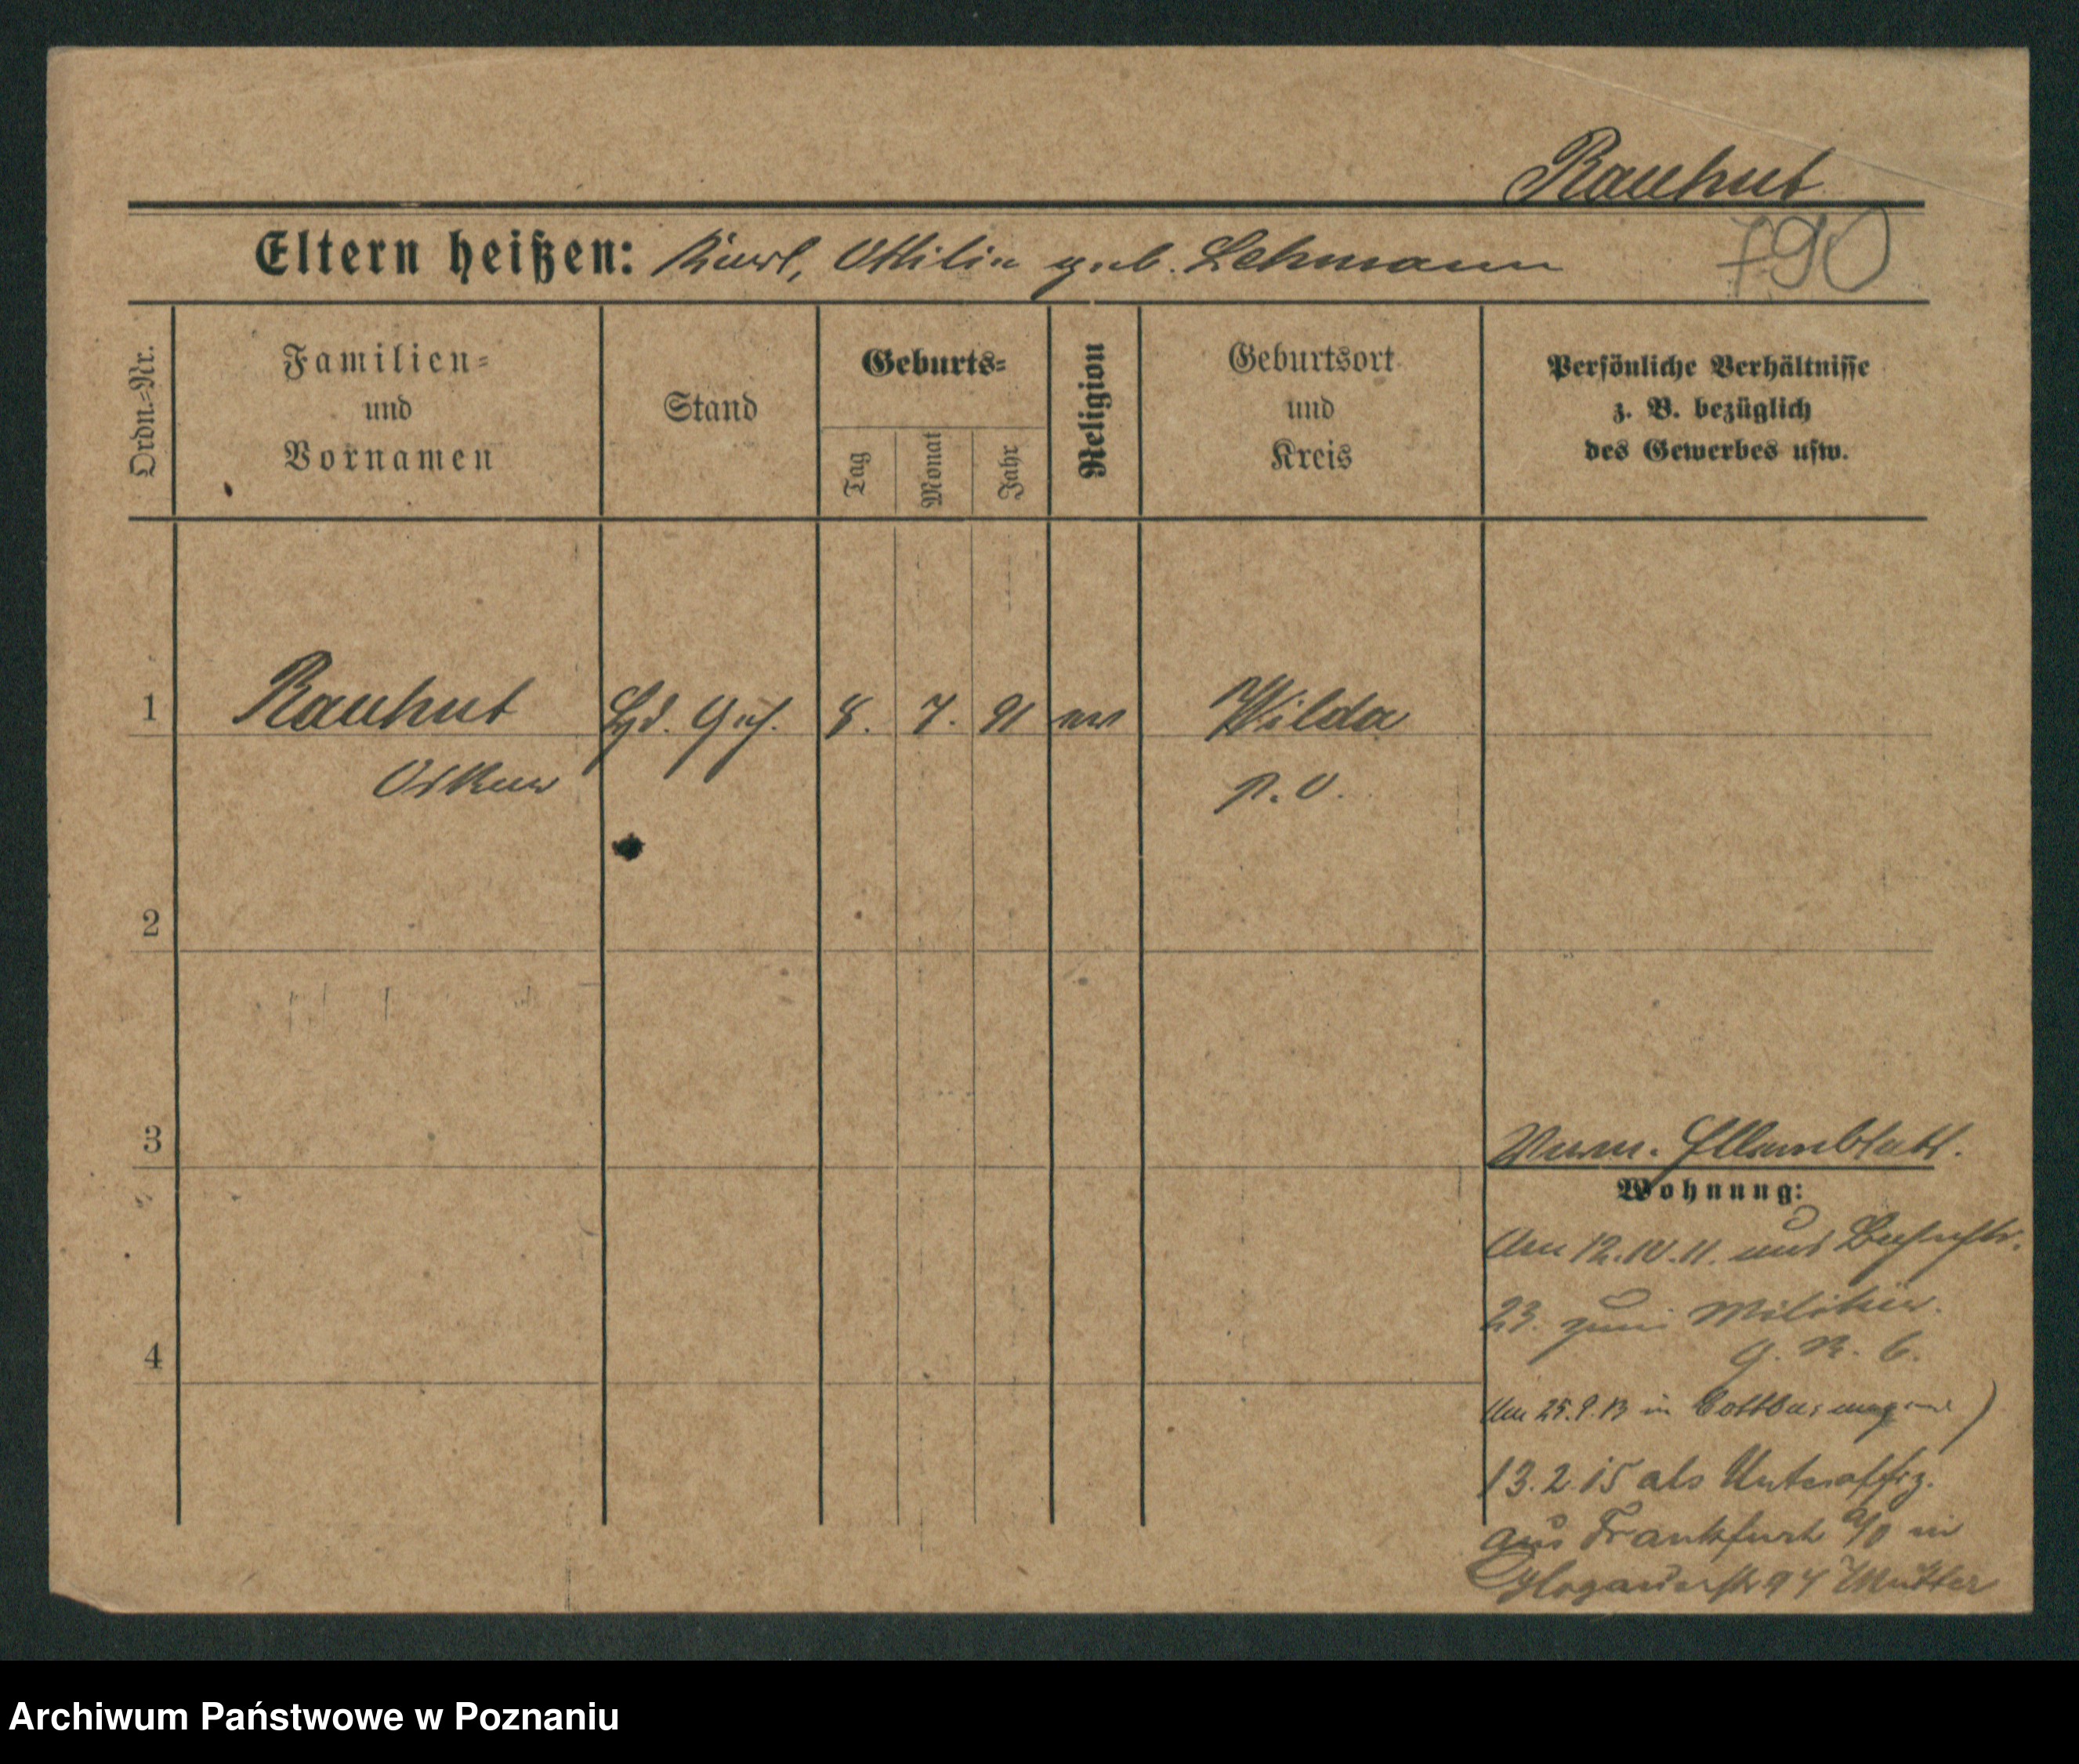 Rauhut
Eltern heißen: Karl, Ottilie geb. Lehmann
790
Ordn.-Nr.
Familien-
und
Vornamen
Stand
Geburts-
Tag
Monat
Jahr
Religion
Geburtsort
und
Kreis
Persönliche Verhältnisse
z. B. bezüglich
des Gewerbes usw.
1
Rauhut
8. 7. 91 ev
Wilda
Oskar
P. O.
2
3
Verm. Elternblatt.
Wohnung:
Am 12. 10. 11. aus
23. zum Militär.
G. R. 6.
Am 25. 9. 13 in Cottbus
13. 2. 15 als Unteroffiz.
aus Frankfurt a/O in
Glogauerstr 94 Mutter
4
Archiwum Państwowe w Poznaniu